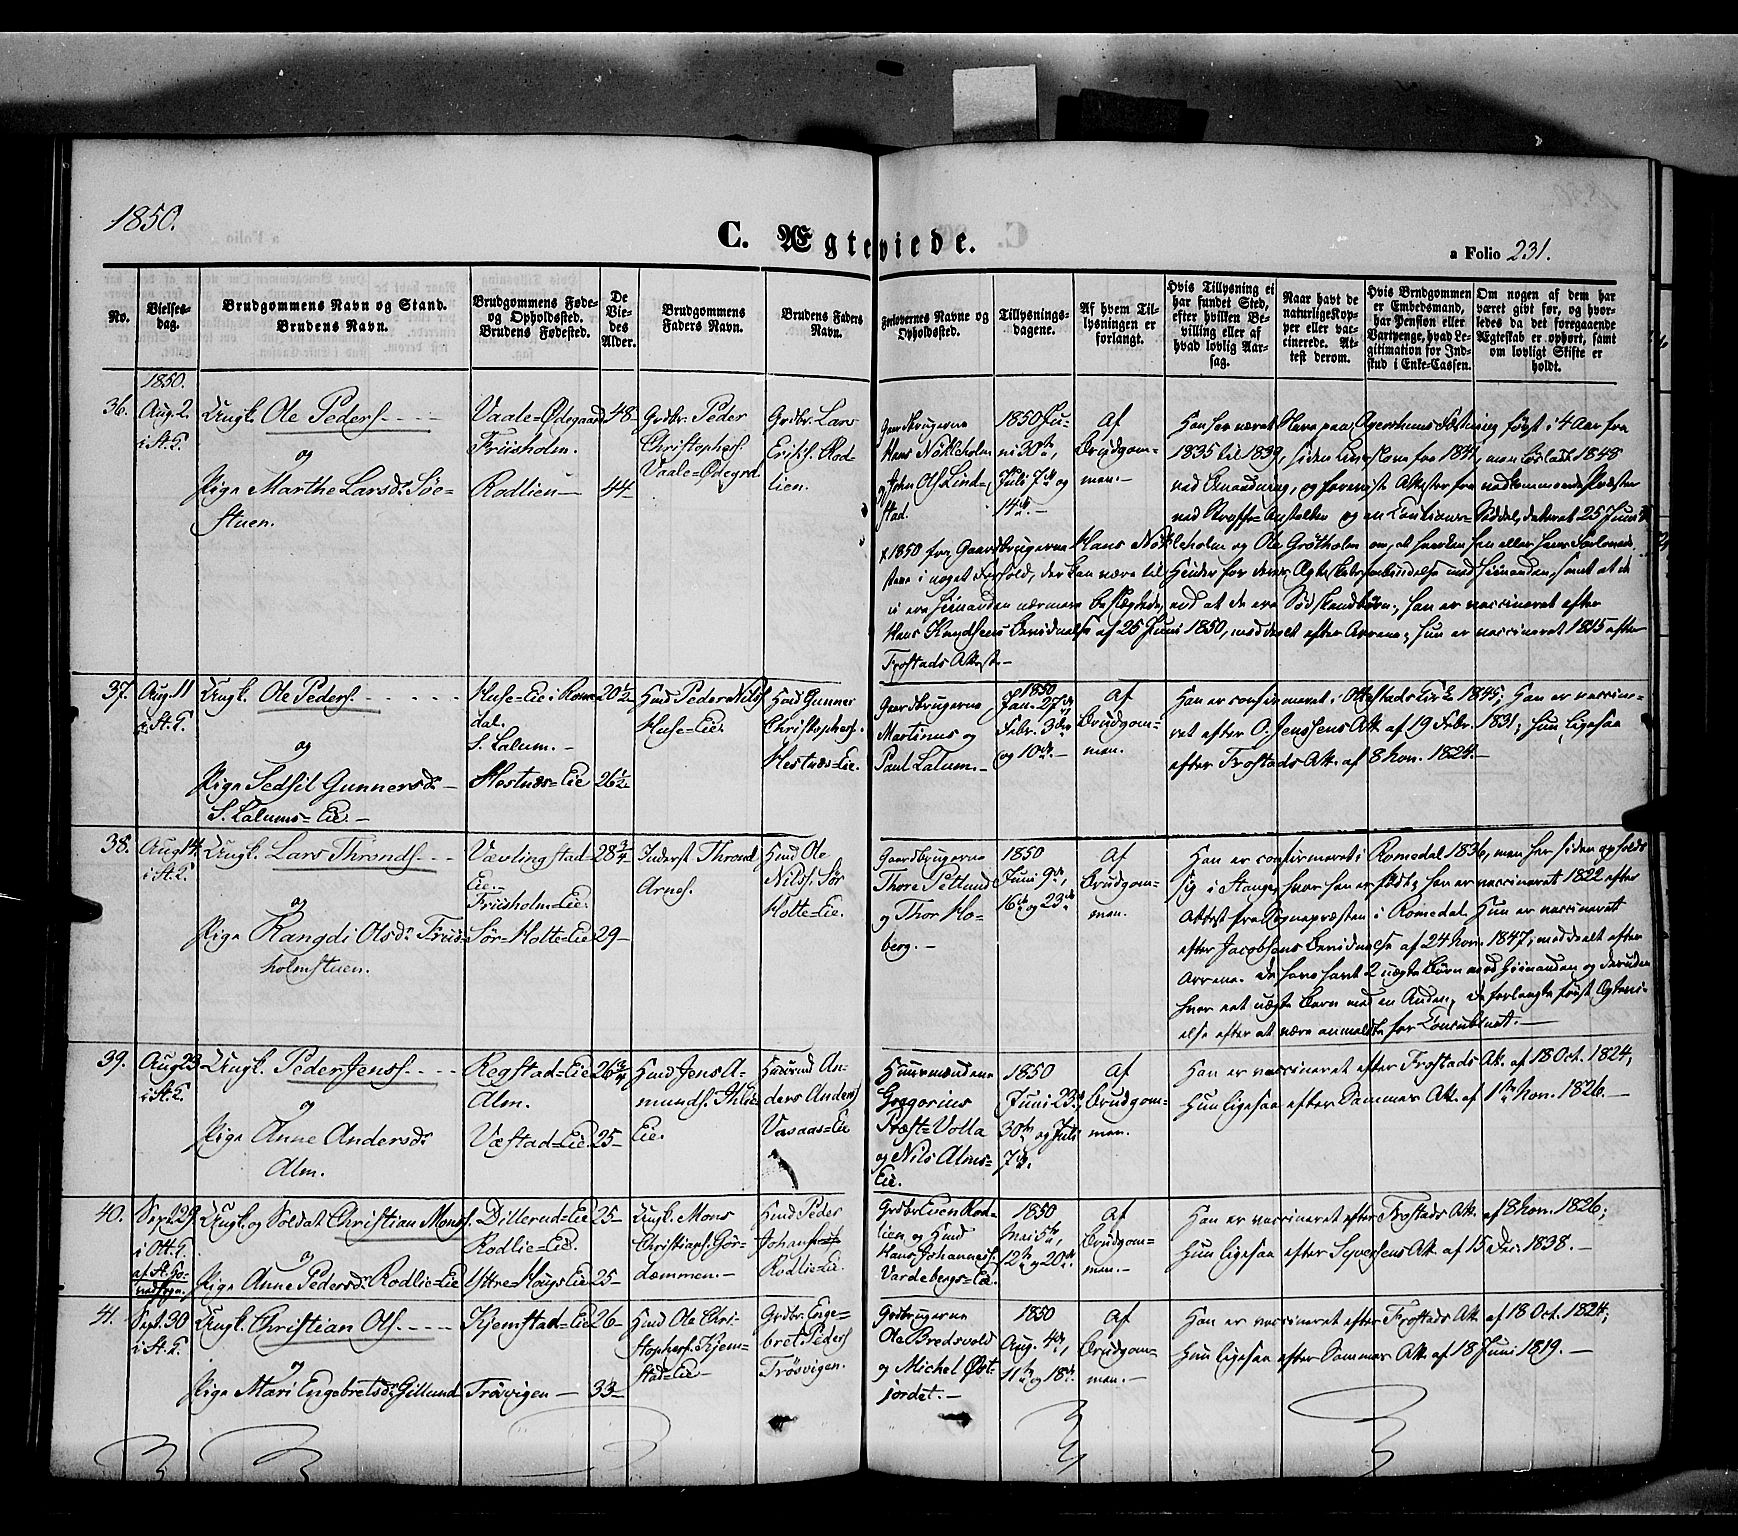 1850.
C. Ægteviede.
a Folio 231.
No.
Vielses-
dag.
Brudgommens Navn og Stand.
Brudens Navn.
Brudgommens Føde-
og Opholdssted.
Brudens Fødested.
De
Vie-
des
Alder.
Brudgommens
Faders Navn.
Brudens Faders
Navn.
Forlovernes Navne og
Opholdssted.
Tillysnings-
dagene.
Af hvem Til-
lysningen er
forlangt.
Hvis Tillysning ei
har fundet Sted,
efter hvilken Be-
villing eller af
hvad lovlig Aar-
sag.
Naar havt de
naturlige Kop-
per eller vac-
cinerede. At-
test derom.
Hvis Brudgommen
er Embedsmand,
har Pension eller
Vartpenge, hvad Le-
gitimation for Ind-
skud i Enke-Cassen.
Om nogen af dem har
været gift før, og hvor-
ledes da det foregaaende
Ægteskab er ophørt, samt
om lovligt Skifte er
holdt.
1850.
36.
Aug. 2.
i St. K.
Ungk. Ole Peders.
og
Pige Marthe Larsdr. Søe-
stuen.
Vaale=Ødegaard
Friisholm.
Rodlien
48
44
Grdbr. Peder
Christophers.
Vaale=Ødegrd.
Grdbr. Lars
Eriks. Rod-
lien.
Gaardbrugerne
Hans Nökleholm
og John Ols. Lind-
stad.
1850 Ju-
ni 30te,
Juli 7de og
14de.
Af
Brudgom-
men.
Han har været Slave paa Agershuus Fæstning först i 4 Aar fra
1835 til 1839, siden Livsslave fra 1841, men løsladt 1848
ved Benaadning, og foreviist Attester fra vedkommende Præster
ved Straffe=Anstalter og en Cautions=Seddel, dateret 25 Juni
1850 fra Gaardbrugerne Hans Nökleholm og Ole Grøtholm om, at hverken han eller hans Forlovede
staae i noget Forhold, der kan være til Hinder for deres Ægteskabsforbindelse med hinanden, samt at de
ei ere hinanden nærmere beslægtede, end at de ere Södskendbörn; han er vaccineret efter
Hans Knudsens Bevidnelse af 25 Juni 1850, meddeelt efter Arrene; hun er vaccineret 1815 efter
Frostads Attest.
37.
Aug. 11
i St. K.
Ungk. Ole Peders.
og
Pige Sedsil Gunnersdr.
S. Lalums=Eie.
Huse=Eie i Rome-
dal.
S. Lalum.
Hestnæs=Eie
20 1/2
26 1/2
Hmd Peder Nils.
Huse=Eie.
Hmd Gunner
Christophers.
Hestnæs=Eie.
Gaardbrugerne
Martinus og
Paul Lalum.
1850
Jan. 27de,
Febr. 3die
og 10de.
Af
Brudgom-
men.
Han er confirmeret i Ottestads Kirke 1845; Han er vaccine-
ret efter O. Jenssens Att. af 19 Febr. 1831; hun ligesaa
efter Frostads Att. af 8 Nov. 1824.
38.
Aug. 14.
i St. K.
Ungk. Lars Thronds.
og
Pige Rangdi Olsdr. Friis-
holmstuen.
Vævlingstad=
Eie.
Friisholm=Eie.
Sör=Holte=Eie
28 3/4
29
Inderst Thrond
Arnes.
Hmd Ole
Nils. Sør
Holte=Eie.
Gaardbrugerne
Thore Petlund
og Thor Ho-
berg.
1850
Juni 9de,
16de og 23de.
Af
Brudgom-
men.
Han er confirmeret i Romedal 1836, men har siden opholdt
sig i Stange, hvor han er født; han er vaccineret 1822 efter
Attest fra Sognepræsten i Romedal. Hun er vaccineret
efter Jacobsens Bevidnelse af 24 Nov. 1847, meddeelt efter
Arrene. De have havt 2 uægte Børn med hinanden og desuden
hver eet uægte Barn med en Anden; de forlangte først Ægtevi-
else efter at være anmeldte for Concubinat.
39.
Aug. 23
i St. K.
Ungk. Peder Jens.
og
Pige Anne Andersdr.
Alm.
Regstad=Eie
Alm.
Væstad=Eie
26 3/4
25
Hmd Jens A-
munds. Ihle
Eie.
Huusmd An-
ders Anders.
Vasaas=Eie
Huusmændene
Gregorius
Præst=Volla
og Nils Alms=
Eie.
1850
Juni 23de,
30te og Juli
7de.
Af
Brudgom-
men.
Han er vaccineret efter Frostads Att. af 18 Oct. 1824;
Hun ligesaa efter Sammes Att. af 1ste Nov. 1826.
40.
Sept. 29.
i Ott. K.
af St. So-
Ungk. og Soldat Christian Mons.
og
Pige Anne Pedersdr. Rodlie=Eie
Dillerud=Eie
Rodlie=Eie.
Ytre=Houg=Eie
25
25
Ungk. Mons
Christians. Gör-
dæmmen.
Hmd Peder
Johans.
Rodlie=Eie.
Grdbr. Even Rod-
lien og Hmd
Hans Johannes.
Vardebergs=Eie.
1850
Mai 5te,
12te og 20de.
Af
Brudgom-
men.
Han er vaccineret efter Frostads Att. af 18 Nov. 1826;
Hun ligesaa efter Syversens Att. af 15 Dec. 1838.
41.
Sept. 30
i St. K.
Ungk. Christian Ols.
og
Pige Mari Engebretsdr. Gillund
Kjemstad=Eie
Trösvigen
26
33
Hmd Ole Chri-
stophers. Kjem-
stad=Eie
Grdbr. Enge-
bret Peders.
Trösvigen.
Grdbrugerne
Ole Bredsvold
og Michel Øst-
jordet.
1850
Aug. 4de,
11te og 18de.
Af
Brudgom-
men.
Han er vaccineret efter Frostads Att. af 18 Oct. 1824;
Hun ligesaa efter Sammes Att. af 18 Juni 1819.